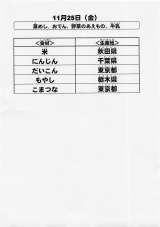 11月25日（金）
菜めし、おでん、野菜のあえもの、牛乳
＜食材＞ ＜生産地＞
米 秋田県
にんじん 千葉県
だいこん 東京都
もやし 栃木県
こまつな 東京都